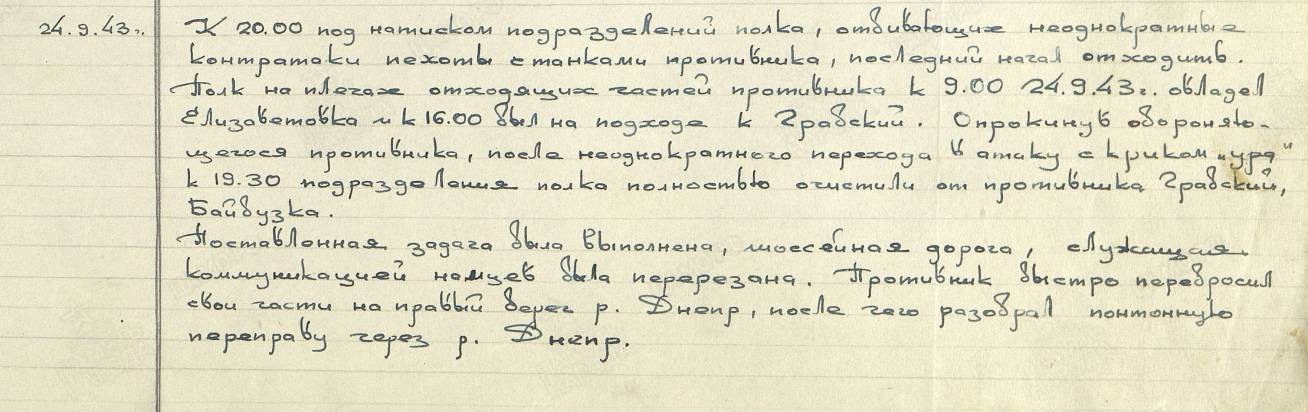 24.9.43г. К 20.00 под натиском подразделений полка, отбивающих неоднократные
контратаки пехоты с танками противника, последний начал отходить.
Полк на плечах отходящих частей противника к 9.00 24.9.43г. овладел
Елизаветовка и к 16.00 был на подходе к Градский. Опрокинув обороняю-
щегося противника, после неоднократного перехода в атаку с криком "ура"
к 19.30 подразделения полка полностью очистили от противника Градский,
Байбузка.
Поставленная задача была выполнена, шоссейная дорога, служащая
коммуникацией немцев была перерезана. Противник быстро перебросил
свои части на правый берег р. Днепр, после чего разобрал понтонную
переправу через р. Днепр.